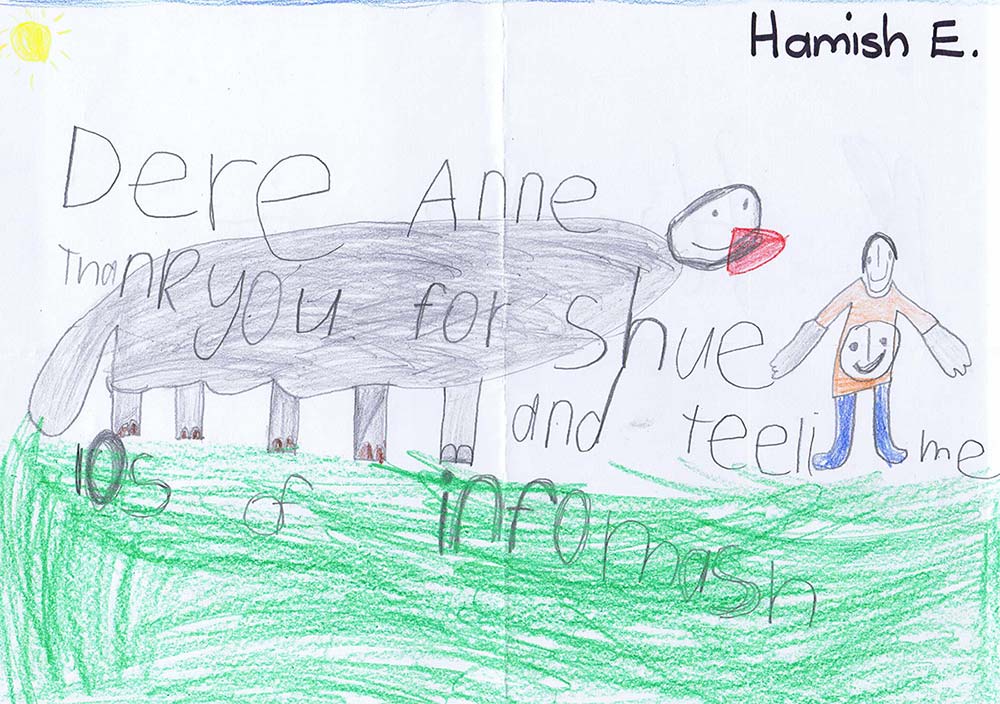 Hamish E.
Dere Anne
Thank you for Shue
and teeli me
los of infomash